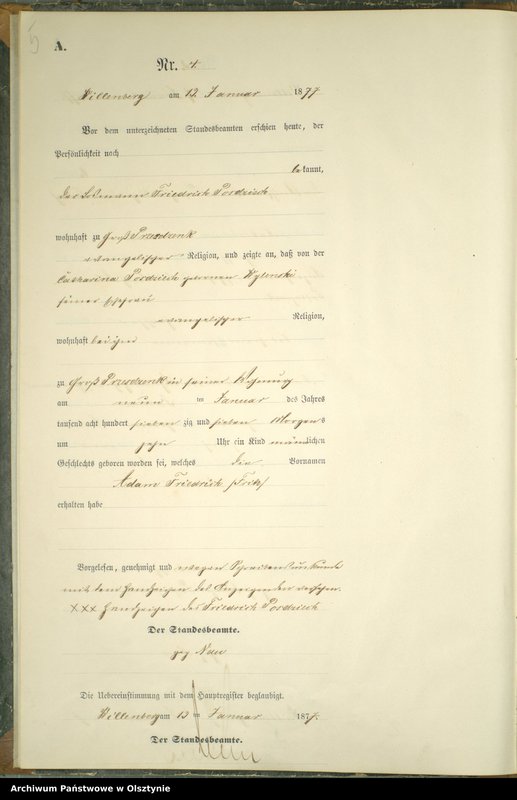 A.
Nr. 4.
Willenberg am 13. Januar 1877
Vor dem unterzeichneten Standesbeamten erschien heute, der
Persönlichkeit nach
bekannt,
der Losmann Friedrich Pordzich
wohnhaft zu Groß Przesdzenk
evangelischer Religion, und zeigte an, daß von der
Catharina Pordzich geborenen
seiner Ehefrau
evangelischer Religion,
wohnhaft bei ihm
zu Groß Przesdzenk in seiner Wohnung
am neun ten Januar des Jahres
tausend acht hundert sieben zig und sieben Morgens
um zehn Uhr ein Kind männlichen
Geschlechts geboren worden sei, welches die Vornamen
Adam Friedrich (Fritz)
erhalten habe
Vorgelesen, genehmigt und wegen Schreibensunkunde
mit dem Handzeichen des Anzeigenden versehen.
XXX Handzeichen des Friedrich Pordzich
Der Standesbeamte.
gez
Die Uebereinstimmung mit dem Hauptregister beglaubigt.
Willenberg am 13 ten Januar 1877.
Der Standesbeamte.
Archiwum Państwowe w Olsztynie